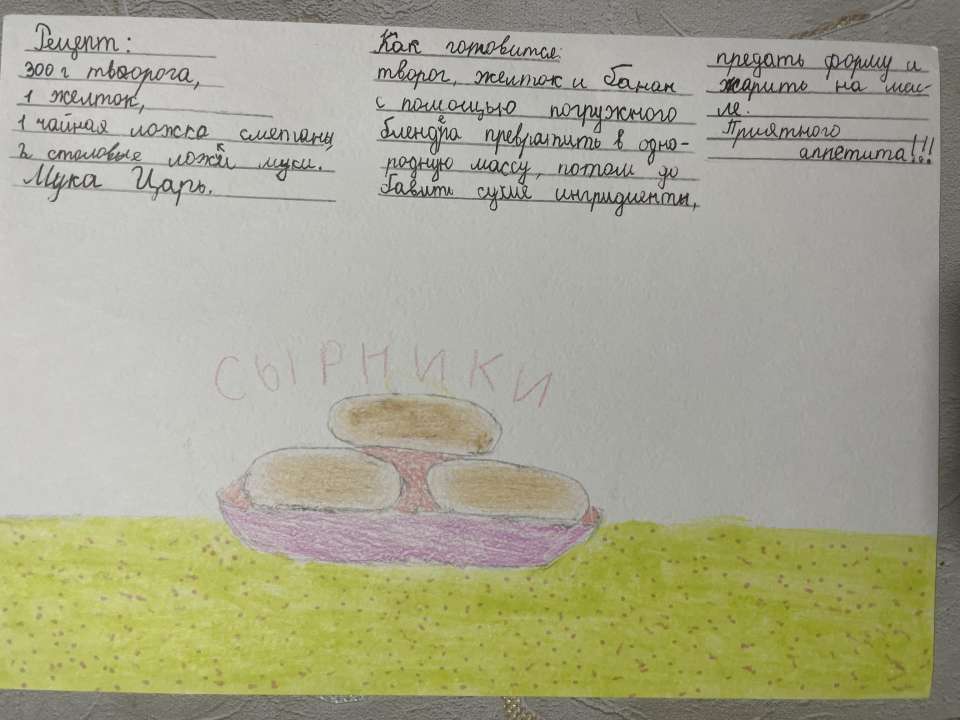 Рецепт:
300 г творога,
1 желток,
1 чайная ложка сметаны,
2 столовые ложки муки.
Мука Царь.
Как готовится:
творог, желток и банан
с помощью погружного
блендера превратить в одно-
родную массу, потом до
бавить сухие ингридиенты,
предать форму и
жарить на мас-
ле.
Приятного
аппетита!!!
СЫРНИКИ